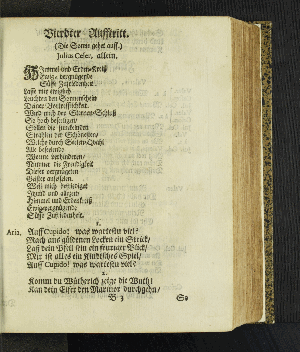 Vierdter Aufftritt.
(Die Sonne gehet auff.)
Julius Cesar, allein.
Himmel und Erden-Kreiß
Ewig vergnügende
Süsse Zufriedenheit.
Laß mir
Leuchten den Sonnenschein
Deiner
Wird mich des Glückes-Schloß
So hoch befestigen/
Sollen die funckelnden
Strahlen der Schönheiten/
Welche durch Seelen-Quahl
Alle besessene
Wonne verhindern/
Nimmer die Freudigkeit
Dieser vergnügten
Geister anfesseln.
Weil mich befriediget
Jetund und allzeit
Himmel und Erdenkreiß
Ewigvergnügende
Süsse Zufriedenheit.
1.
Aria. Auff Cupido! was wartestu viel?
Mach aus güldenen Locken ein Strick/
Laß dein Pfeil sein ein feuriger Blick/
Mir ist alles ein kindisches Spiel/
Auff Cupido! was wartestu viel?
2.
Komm du Wüterich zeige die Wuth!
Kan dein Eifer den Marmor durchgehn/
B 3 So